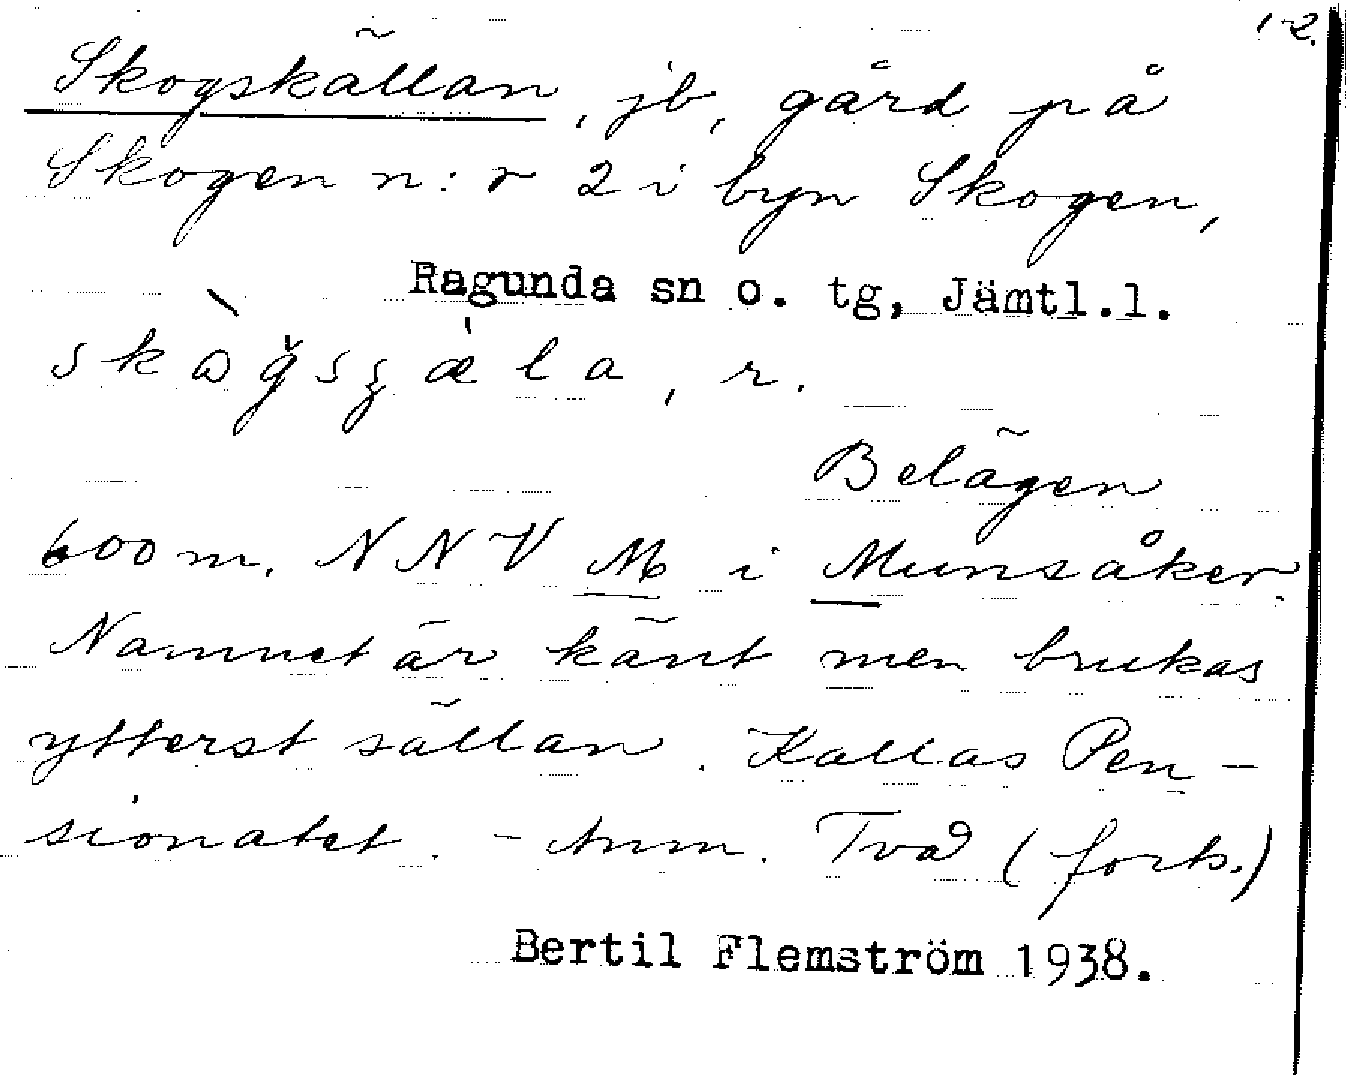 1 2.
Skogskällan, jb, gård på
Skogen n:r 2 i byn Skogen,
Ragunda sn o. tg, Jämtl.l.
, r.
Belägen
600 m. NNV M i Munsåker.
Namnet är känt men brukas
ytterst sällan. Kallas Pen-
sionatet. - Anm. Två (forts.)
Bertil Flemström 1938.